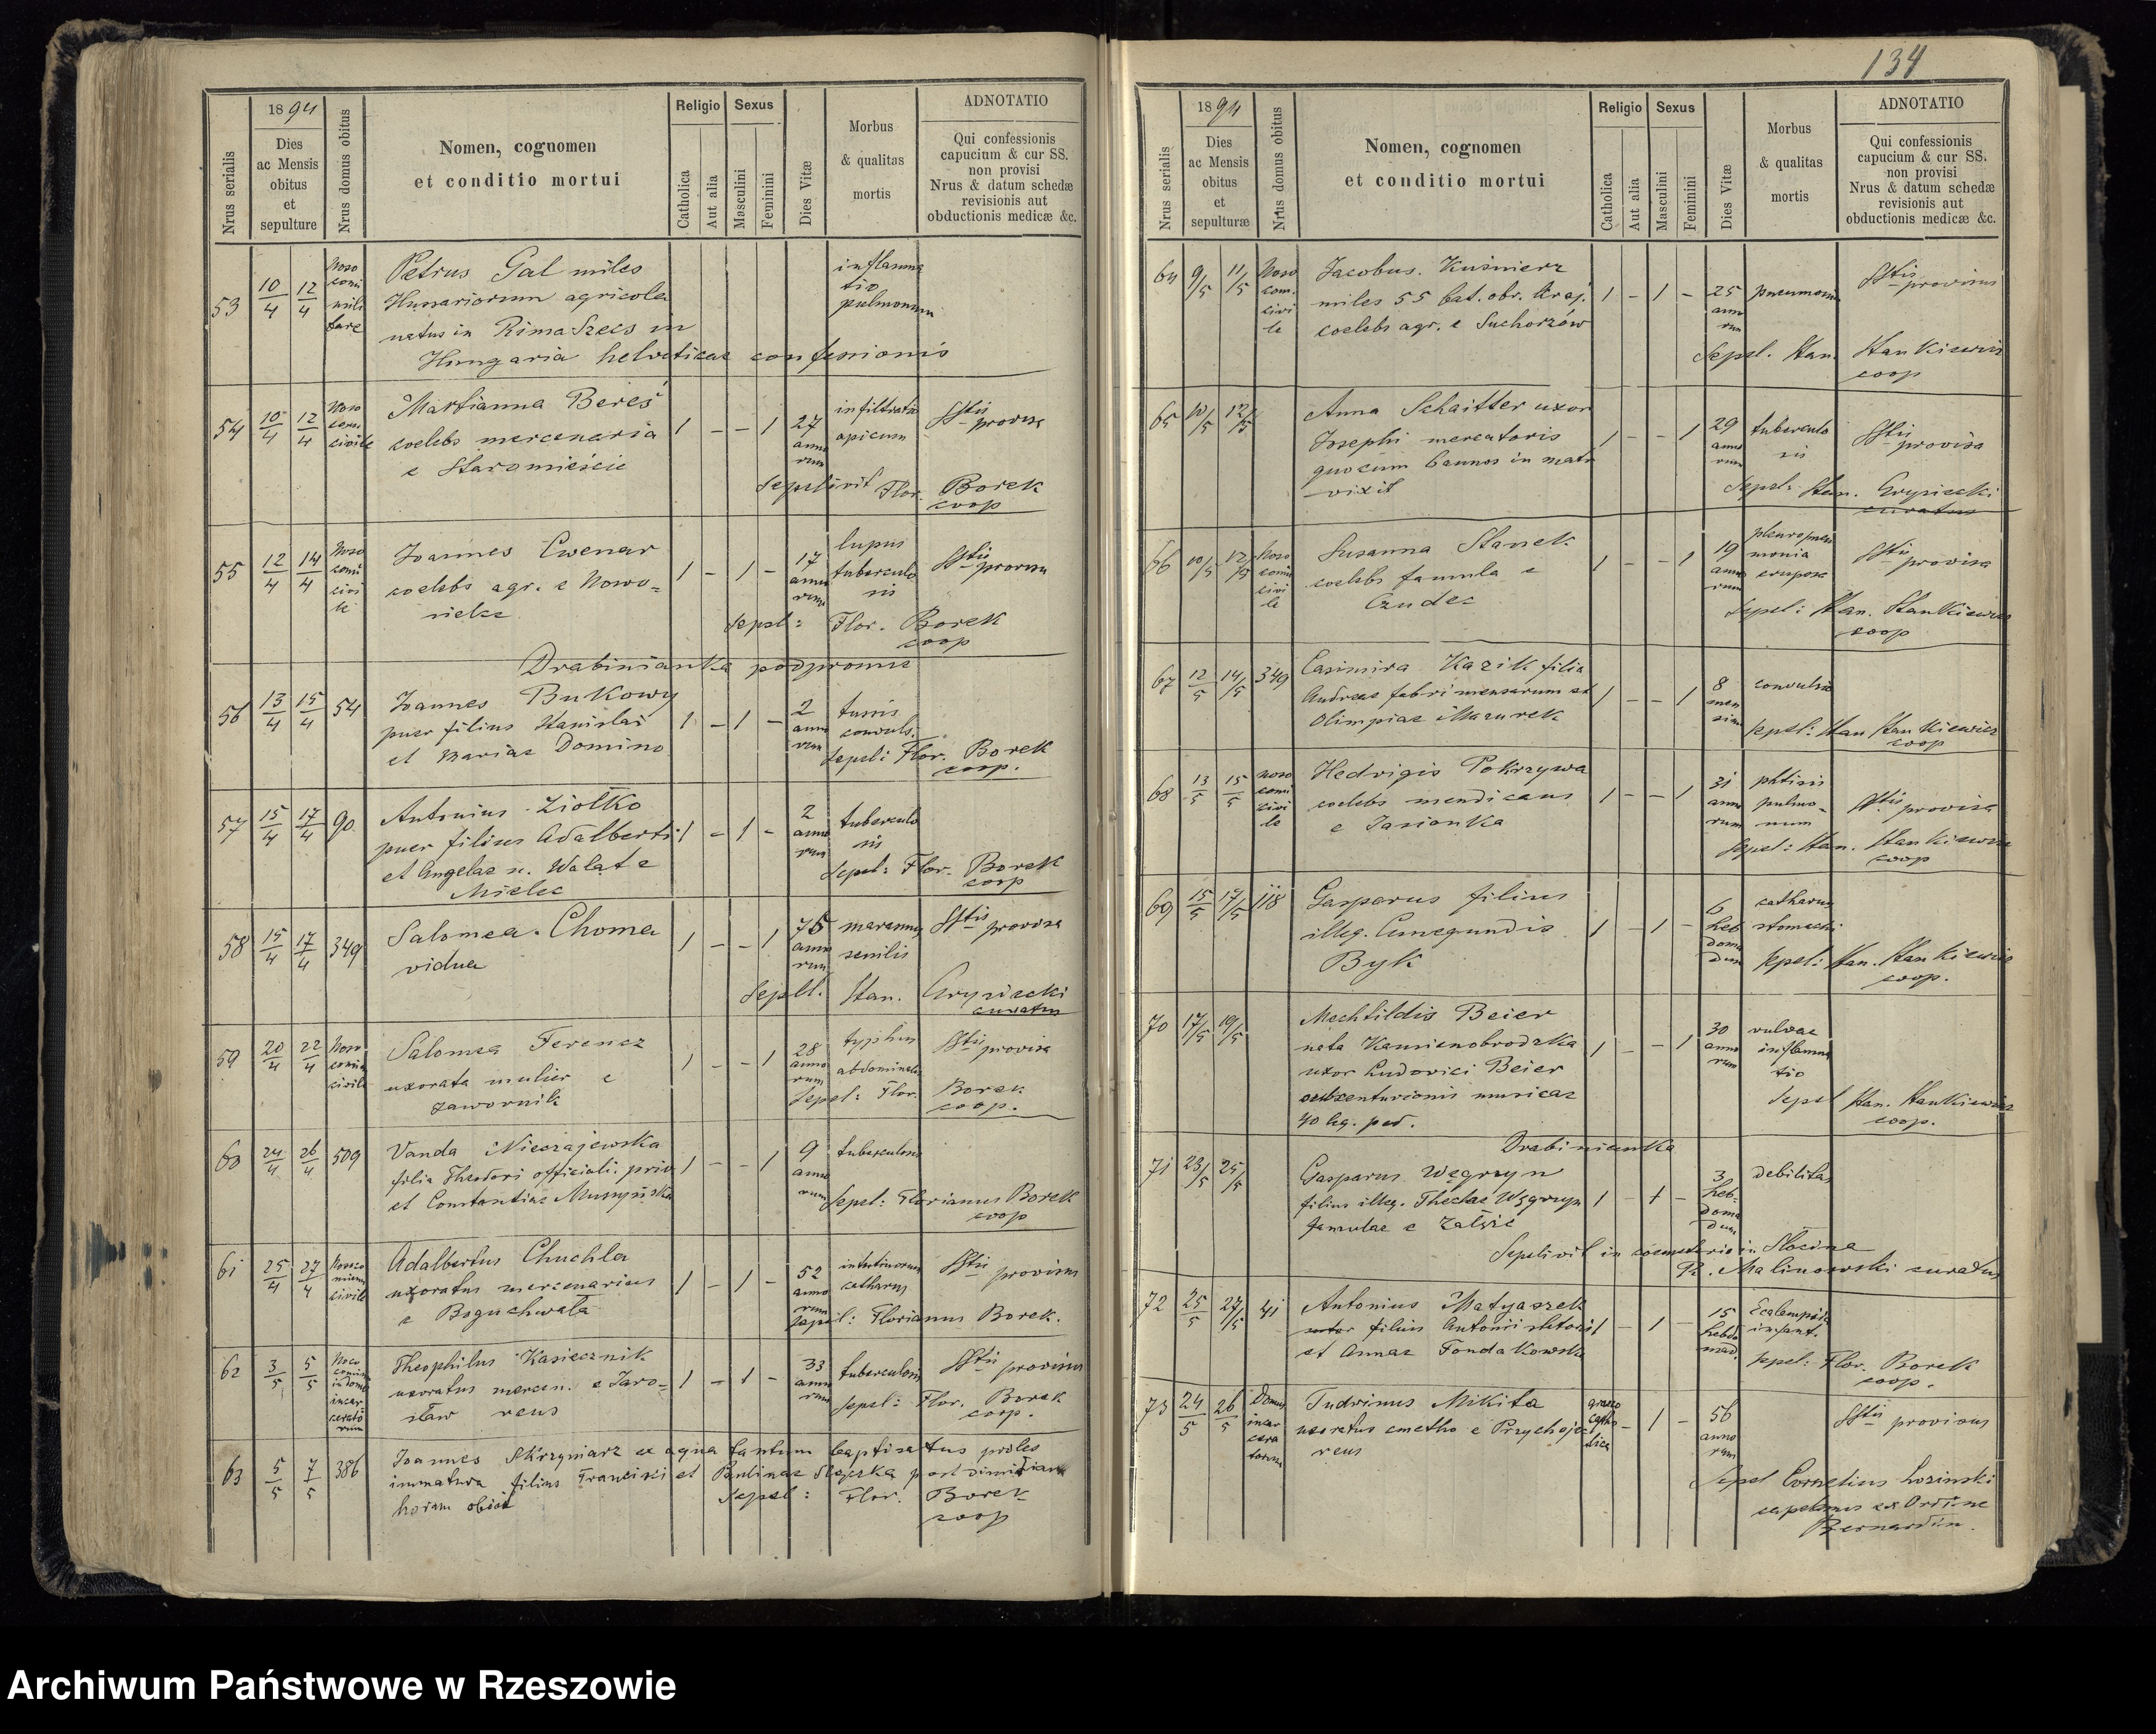 134
Nrus serialis
1894
Dies
ac Mensis
obitus
et
sepulture
Nrus domus obitus
Nomen, cognomen
et conditio mortui
Religio
Catholica
Aut alia
Sexus
Masculini
Feminini
Dies Vitæ
Morbus
& qualitas
mortis
ADNOTATIO
Qui confessionis
capucium & cur SS.
non provisi
Nrus & datum schedæ
revisionis aut
obductionis medicæ &c.
53 10/4 12/4 Noso comi mili tare
Petrus Gal miles
Hussariorum agricola
natus in Rima Szecs in
Hungaria helveticae confessionis
inflamma
tio
pulmonum
54 10/4 12/4 Noso comi civile
Marianna Bereś
coelebs mercenaria
e Staromieście
1 - - 1 27 annorum
infiltratio
apicum
SStis provisa
Sepelivit Flor. Borek
coop
55 12/4 14/4 Noso comi civi le
Joannes Ewenar
coelebs agr. e Nowo=
sielce
1 - 1 - 17 annorum
lupus
tuberculo
sis
SStis provisus
Sepel: Flor. Borek
coop
Drabinianka podpromie
56 13/4 15/4 54
Joannes Bukowy
puer filius Stanislai
et Mariae Domino
1 - 1 - 2 annorum
tussis
convuls.
Sepel: Flor. Borek
coop.
57 15/4 17/4 90
Antonius Ziołko
puer filius Adalberti
et Angelae n. Walat e
Mielec
1 - 1 - 2 annorum
tuberculo
sis
Sepel: Flor. Borek
coop
58 15/4 17/4 349
Salomea Choma
vidua
1 - - 1 75 annorum
marasmus
senilis
SStis provisa
Sepel. Stan. Gryziecki
curatus
59 20/4 22/4 Noso comio civile
Salomea Ferencz
uxorata mulier e
Jawornik
1 - - 1 28 annorum
typhus
abdominalis
SStis provisa
Sepel: Flor. Borek
coop.
60 24/4 26/4 509
Vanda Nieczajewska
filia Theodori officiali. priv
et Constantiae
1 - - 1 9 annorum
tuberculosis
Sepel: Florianus Borek
coop
61 25/4 27/4 Nosocomium civile
Adalbertus Chuchla
uxoratus mercenarius
e Boguchwała
1 - 1 - 52 annorum
intestinorum
catharus
SStis provisus
Sepel: Florianus Borek.
62 3/5 5/5 Noso comium in domo incar ceratorum
Theophilus Kasiecznik
uxoratus mercen. e Jaro-
sław reus
1 - 1 - 33 annorum
tuberculosis
SStis provisus
Sepel: Flor. Borek
coop.
63 5/5 7/5 386
Joannes Skrzyniarz ex aqua tantum baptisatus proles
immatura filius Francisci et Paulinae Ślęczka post dimidiam
horam obiit
Sepel: Flor. Borek
coop
Nrus serialis
1894
Dies
ac Mensis
obitus
et
sepulturæ
Nrus domus obitus
Nomen, cognomen
et conditio mortui
Religio
Catholica
Aut alia
Sexus
Masculini
Feminini
Dies Vitæ
Morbus
& qualitas
mortis
ADNOTATIO
Qui confessionis
capucium & cur SS.
non provisi
Nrus & datum schedæ
revisionis aut
obductionis medicæ &c.
64 9/5 11/5 Noso com. civi le
Jacobus Kuśnierz
miles 55 bat. obr. kraj.
coelebs agr. e Suchorzów
1 - 1 - 25 annorum
pneumonia
SStis provisus
Sepel. Stan. Stankiewicz
coop
65 10/5 12/5
Anna Schaitter uxor
Josephi mercatoris
quocum 6 annos in matr
vixit
1 - - 1 29 annorum
tuberculo
sis
SStis provisa
Sepel: Stan. Gryziecki
curatus
66 10/5 12/5 Noso comio civi le
Susanna Stanek
coelebs famula e
Czudec
1 - - 1 19 annorum
pleuropneu
monia
cruposa
SStis provisa
Sepel: Stan. Stankiewicz
coop
67 12/5 14/5 349
Casimira Kazik filia
Andreae fabri mensarum et
Olimpiae Mazurek
1 - - 1 8 mensium
convulsio
Sepel: Stan Stankiewicz
coop
68 13/5 15/5 Noso comi civi le
Hedvigis Pokrzywa
coelebs mendicans
e Jasionka
1 - - 1 31 annorum
phtisis
pulmo-
num
SStis provisa
Sepel: Stan. Stankiewicz
coop
69 15/5 17/5 118
Gasparus filius
illeg. Cunegundis
Byk
1 - 1 - 6 hebdomadum
catharus
stomachi
Sepel: Stan. Stankiewicz
coop.
70 17/5 19/5
Mechtildis Beier
nata Kamienobrodzka
uxor Ludovici Beier
subcenturionis musicae
40 leg. ped.
1 - - 1 30 annorum
vulvae
inflamma
tio
Sepel Stan. Stankiewicz
coop.
Drabinianka
71 23/5 25/5
Gasparus Węgrzyn
filius illeg. Theclae Węgrzyn
famulae e Zalesie
1 - 1 - 3 hebdomadum
debilitas
Sepelivit in coemeterio in Słocina
R. Malinowski curatus
72 25/5 27/5 41
Antonius Matyaszek
filius Antonii
et Annae Fondakowska
1 - 1 - 15 hebdomad.
Ecalempsia
infant.
Sepel: Flor. Borek
coop.
73 24/5 26/5 Domus incar cera torum
Mikita
uxoratus cmetho e Przychojec
reus
graeco catholica - 1 - 56 annorum
SStis provisus
Sepel Cornelius Łozinski
capelanus ex Ordine
Bernardin.
Archiwum Państwowe w Rzeszowie